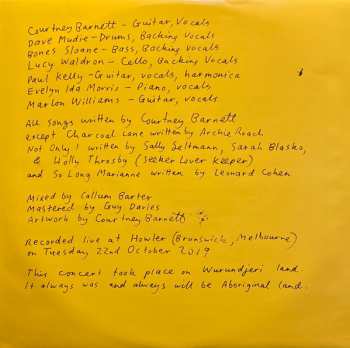 Courtney Barnett - Guitar, Vocals
Dave Mudie - Drums, Backing Vocals
Bones Sloane - Bass, Backing Vocals
Lucy Waldron - Cello, Backing Vocals
Paul Kelly - Guitar, vocals, harmonica
Evelyn Ida Morris - Piano, vocals
Marlon Williams - Guitar, vocals
All songs written by Courtney Barnett
except Charcoal Lane written by Archie Roach
Not Only I written by Sally Seltmann, Sarah Blasko,
& Holly Throsby (Seeker Lover Keeper)
and So Long Marianne written by Leonard Cohen
Mixed by Callum Barter
Mastered by Guy Davies
Artwork by Courtney Barnett
Recorded live at Howler (Brunswick, Melbourne)
on Tuesday 22nd October 2019
This concert took place on Wurundjeri land
It always was and always will be Aboriginal land.